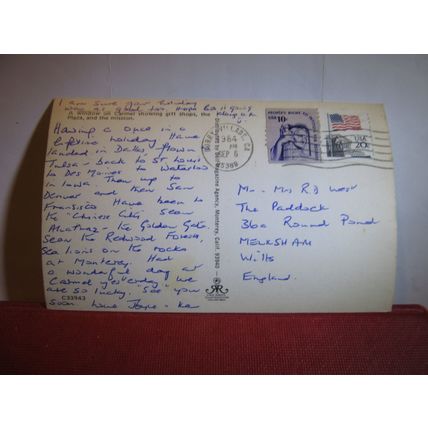 I am sure your holiday
was as good too. Hope Ka is going
A window on Carmel showing gift shops, the
Plaza, and the mission.
Having a once in a
lifetime holiday. Have
landed in Dallas flown
Tulsa - back to St Louis
to Des Moines to Waterloo
in Iowa. Then up to
Denver and then San
Fransisco. Have been to
the "Chinese Cite" seen
Alcatraz - the Golden Gate.
Seen the Redwood Forest,
Sea lions on the rocks
at Monterey. Had
a wonderful day at
Carmel yesterday, we
are so lucky. See you
soon. Love
C33943
Distributed by Magazine Agency, Monterey, Calif. 93940
PEOPLE'S RIGHT
USA
10c
USA
20c
CA
PM
SEP 6
1984
Mr. Mrs R.D West
The Paddock
36a Round Pond
MELKSHAM
Wilts
England.